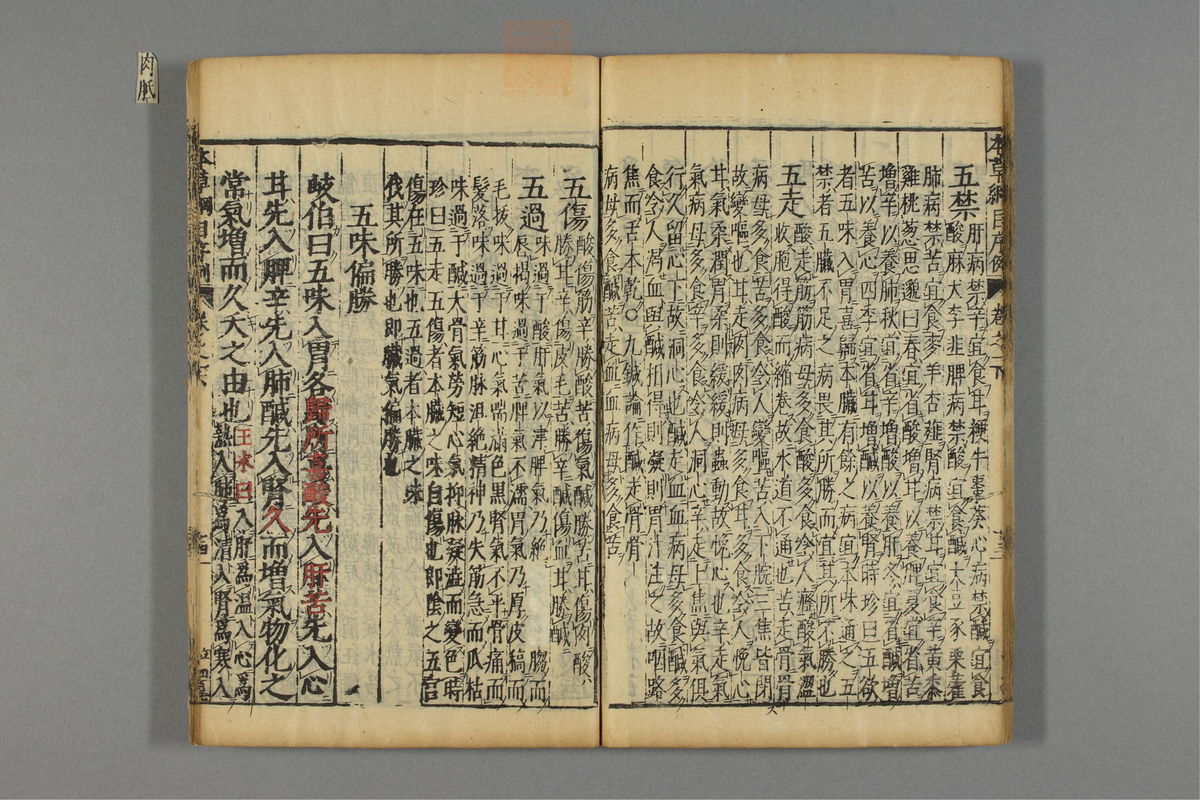 本草綱目序例 卷之一下
五禁 肝病禁辛宜食甘粳牛棗葵心病禁鹹宜食
酸麻犬李韭脾病禁酸宜食鹹大豆豕栗藿
肺病禁苦宜食麥羊杏薤腎病禁甘宜食辛黃黍
雞桃葱思邈曰春宜省酸增甘以養脾夏宜省苦
增辛以養肺秋宜省辛增酸以養肝冬宜省鹹增
苦以養心四季宜省甘增鹹以養腎時珍曰五欲
者五味入胃喜歸本臟有餘之病宜本味通之五
禁者五臟不足之病畏其所勝而宜其所不勝也
五走 酸走筋筋病毋多食酸多食令人癃酸氣澀
收胞得酸而縮卷故水道不通也苦走骨骨
病毋多食苦多食令人變嘔苦入下脘三焦皆閉
故變嘔也甘走肉肉病毋多食甘多食令人悗心
甘氣柔潤胃柔則緩緩則蟲動故悗心也辛走氣
氣病毋多食辛多食令人洞心辛走上焦與氣俱
行久留心下故洞心也鹹走血血病毋多食鹹多
食令人渴血與鹹相得則凝凝則胃汁注之故咽路
焦而舌本乾○九鍼論作鹹走骨骨
病毋多食鹹苦走血血病毋多食苦
五傷 酸傷筋辛勝酸苦傷氣鹹勝苦甘傷肉酸
勝甘辛傷皮毛苦勝辛鹹傷血甘勝鹹
五過 味過于酸肝氣以津脾氣乃絕 䐢而
唇揭味過于苦脾氣不濡胃氣乃厚皮稿而
毛拔味過于甘心氣喘滿色黑腎氣不平骨痛而
髮落味過于辛筋脉沮絕精神乃失筋急而爪枯
味過于鹹大骨氣勞短心氣抑脉凝澁而變色時
珍曰五走五傷者本臟之味自傷也即陰之五宮
傷在五味也五過者本臟之味
伐其所勝也即臟氣偏勝也
五味偏勝
岐伯曰五味入胃各歸所喜酸先入肝苦先入心
甘先入脾辛先入肺鹹先入腎久而增氣物化之
常氣增而久夭之由也 王氷曰入肝爲溫入心爲
熱入肺爲清入腎爲寒入
本草綱目序例
肉胝